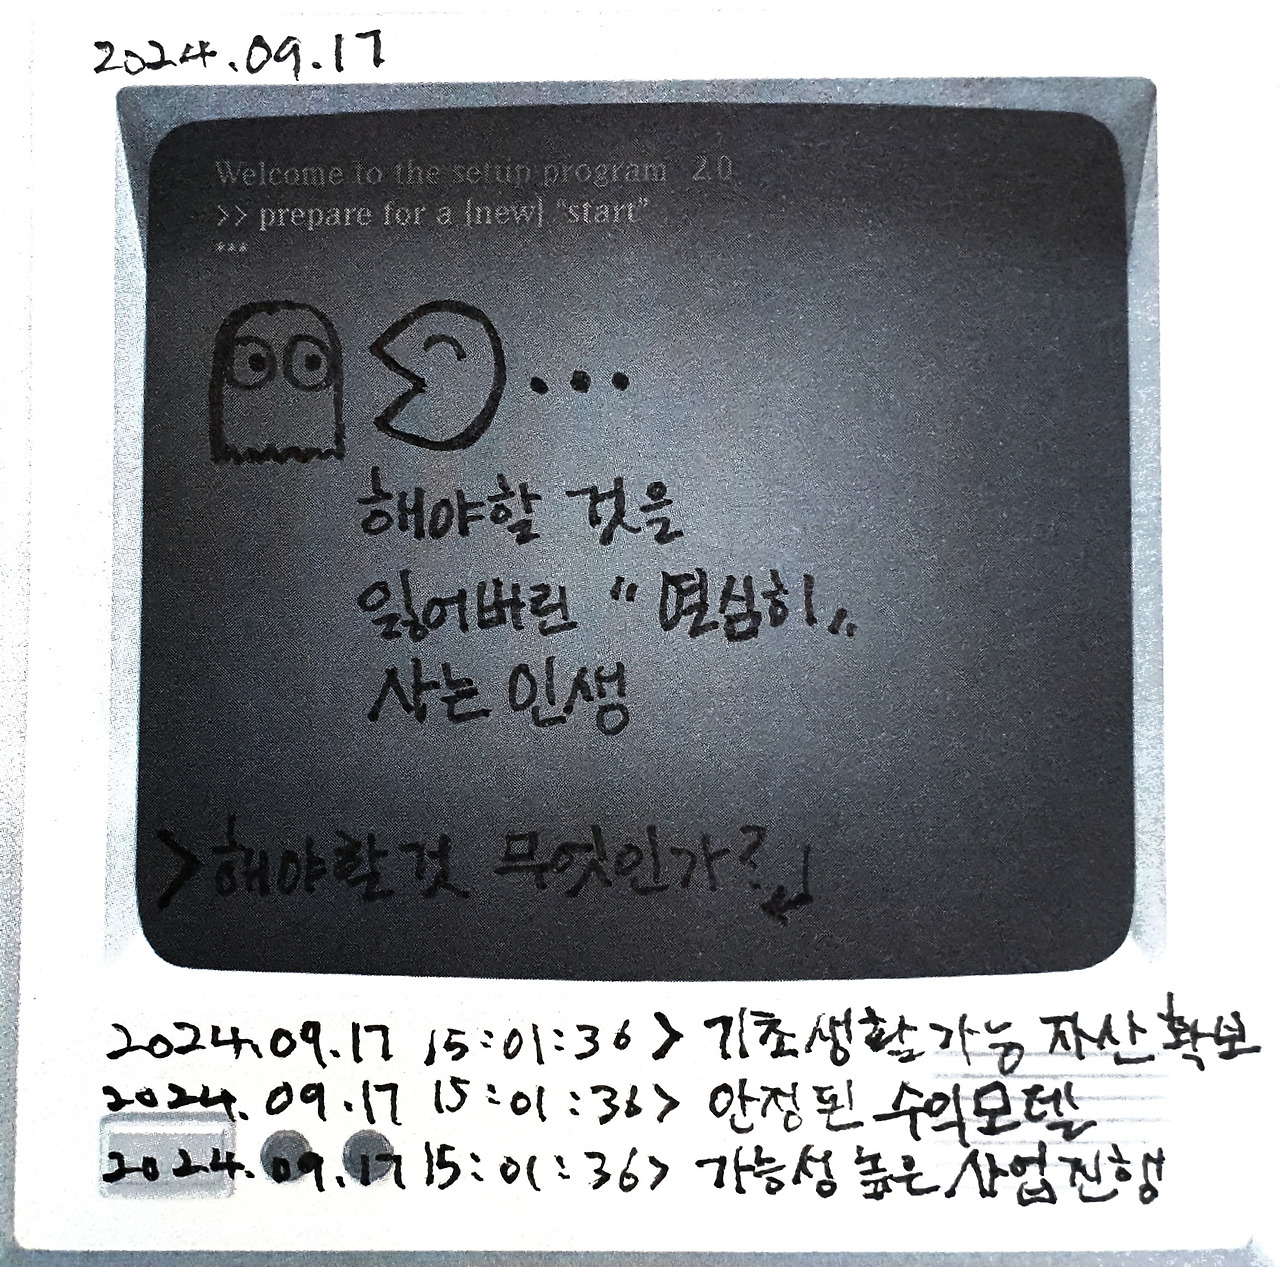 2024.09.17
Welcome to the setup program 2.0
>> prepare for a [new] "start"
***
해야할 것을
잃어버린 "열심히"
사는 인생
>해야할것 무엇인가?↲
2024.09.17 15:01:36> 기초생활가능 자산확보
2024.09.17 15:01:36> 안정된 수익모델
2024.09.17 15:01:36> 가능성 높은 사업진행